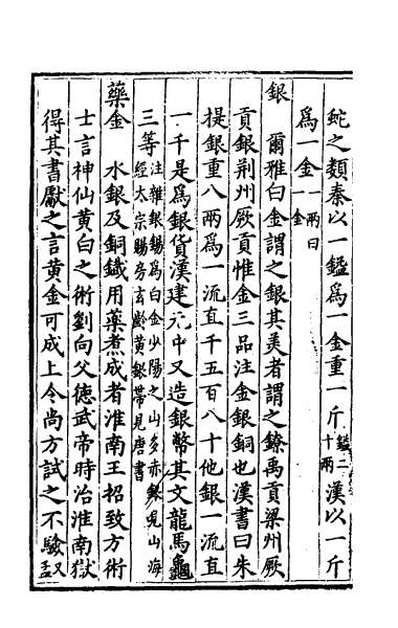 蛇之類秦以一鎰爲一金重一斤鎰二十兩漢以一斤
爲一金一兩曰一金
銀　爾雅白金謂之銀其美者謂之鐐禹貢梁州厥
貢銀荆州厥貢惟金三品注金銀銅也漢書曰朱
提銀重八兩爲一流直千五百八十他銀一流直
一千是爲銀貨漢建元中又造銀幣其文龍馬龜
三等注雜銀錫爲白金少陽之山多赤銀見山海經太宗賜房玄齡黃銀帶見唐書
藥金　水銀及銅鐵用藥煮成者淮南王招致方術
士言神仙黄白之術劉向父德武帝時治淮南獄
得其書獻之言黄金可成上令尚方試之不驗